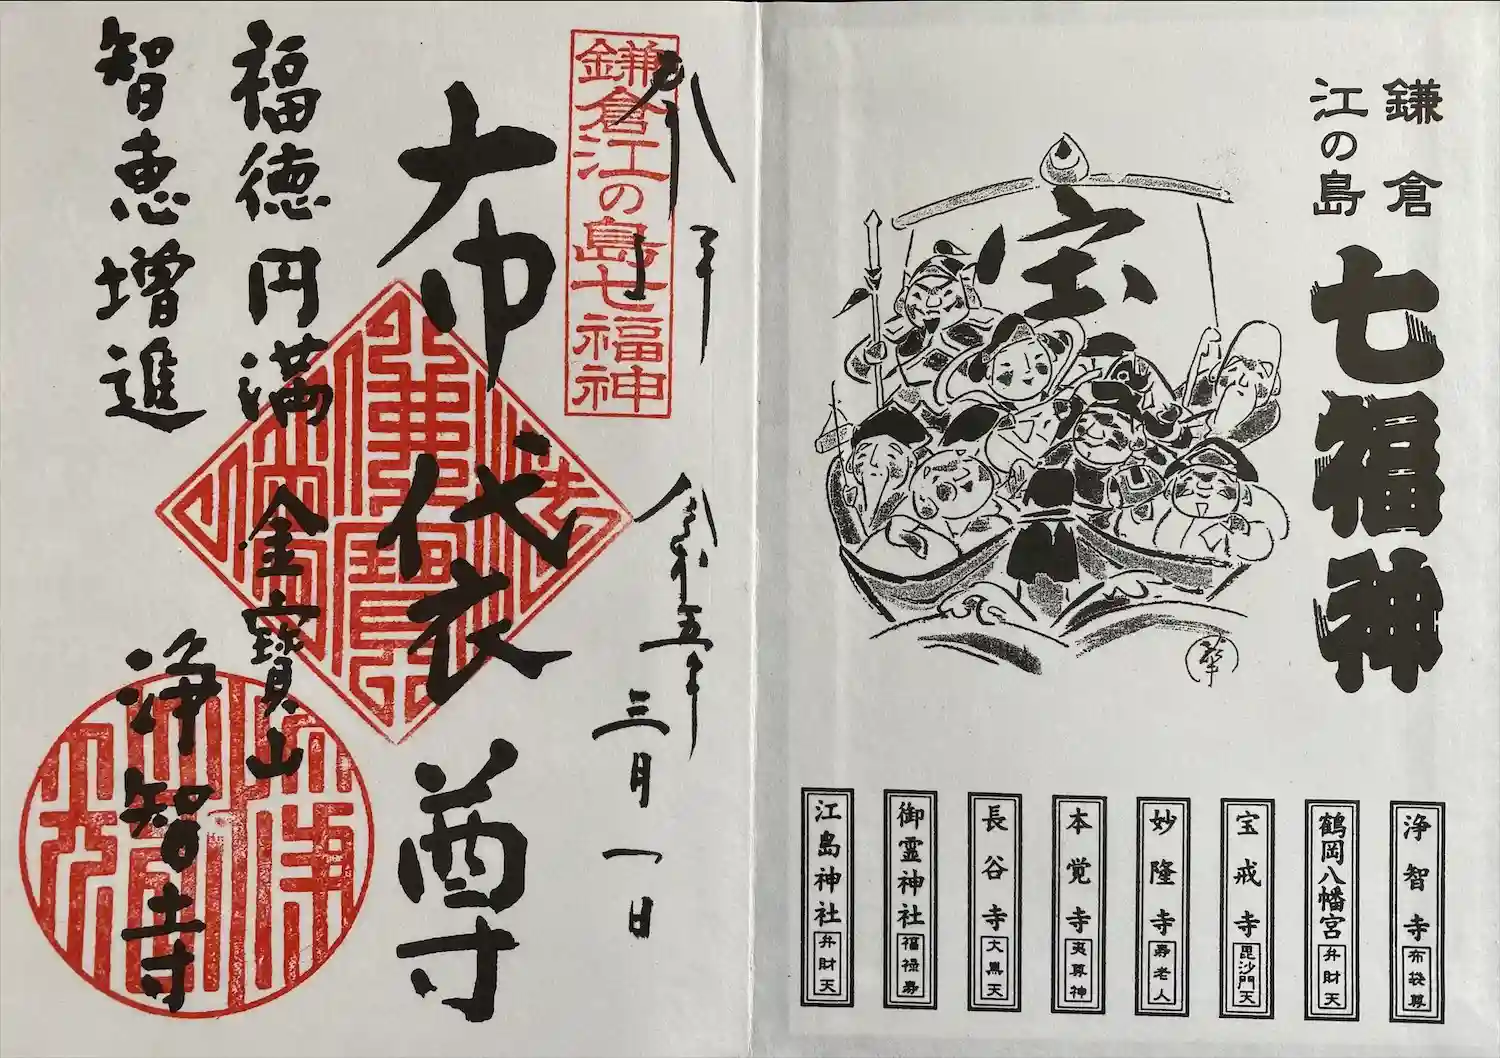 鎌倉
江の島
七福神
宝
浄智寺 布袋尊
鶴岡八幡宮 弁財天
宝戒寺 毘沙門天
妙隆寺 寿老人
本覚寺 夷尊神
長谷寺 大黒天
御霊神社 福禄寿
江島神社 弁財天
奉拝
鎌倉江の島七福神
令和五年
三月一日
布袋尊
福徳円満
智恵増進
金寶山
浄智寺